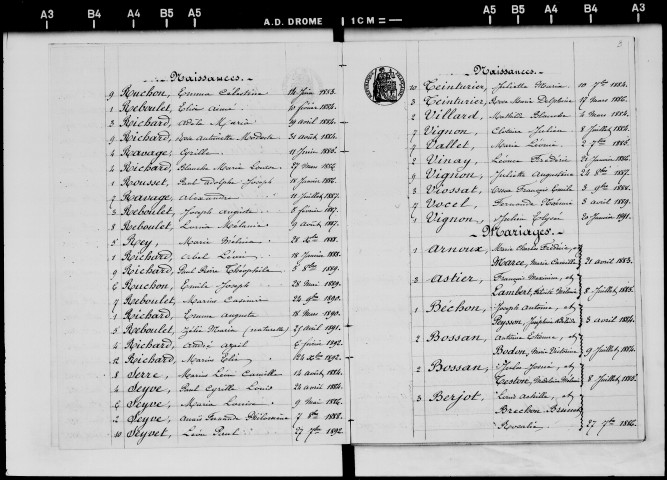 A3 B4 B5 A4 A5 A.D. DROME 1 CM = A5 A4 B5 B4 A3
Naissances.
9 Ruchon, Emma Célestine 14 Juin 1883.
1 Reboulet, Elie Aimé 10 février 1884.
3 Richard, Adèle Maria 29 avril 1884.
9 Richard, Rose Antoinette Modeste 31 août 1884.
4 Ravage, Cyrille 11 Juin 1885.
4 Richard, Blanche Marie Louise 27 mars 1886.
1 Rousset, Paul Adolphe Joseph 18 Janvier 1886.
7 Ravage, Alexandre 11 Juillet 1887.
3 Reboulet, Joseph Auguste 5 février 1887.
8 Reboulet, Louise Mélanie 9 août 1887.
5 Rey, Marie Hélène 28 1888.
1 Richard, Abel Léon 18 Janvier 1888.
9 Richard, Paul Pierre Théophile 3 8bre 1889.
6 Ruchon, Emile Joseph 28 mai 1889.
7 Reboulet, Marius Casimir 24 9bre 1890.
1 Richard, Emma Augusta 18 mars 1890.
5 Reboulet, Zélie Marie (naturelle) 29 avril 1891.
4 Richard, André 6 février 1892.
12 Richard, Marius Elie 24 Xbre 1892.
8 Serre, Marius Léon Camille 14 août 1884.
4 Seyve, Paul Cyrille Louis 24 avril 1884.
6 Seyve, Maria Louise 9 mai 1886.
2 Seyve, Anaïs Fernande Philomène 7 8bre 1888.
10 Seyvet, Léon Paul 27 7bre 1892.
3
Naissances.
10 Teinturier, Juliette Marie 10 7bre 1884.
3 Teinturier, Rose Marie Delphine 17 mars 1886.
2 Villard, Mathilde Blanche 4 mars 1884.
7 Vignon, Julien 8 Juillet 1884.
7 Vallet, Marie Léonie 2 7bre 1885.
2 Vinay, Léonce Frédéric 21 Janvier 1886.
9 Vignon, Juliette Augustine 23 8bre 1887.
3 Viossat, François Emile 3 9bre 1888.
7 Vocet, Fernande Noémie 3 avril 1889.
1 Vignon, Julien Elysée 20 Janvier 1891.
Mariages.
1 Arnoux, Marie Charles Frédéric, et
Marce, Marie Camille 21 avril 1883.
3 Astier, François Maximin, et
Lambert, 8 Juillet 1885.
1 Béchon, Joseph Antoine, et
Peysson, Joséphine 3 avril 1884.
2 Bossan, Antoine Etienne, et
Bodon, Marie Victorine 9 Juillet 1884.
2 Bossan, Jules Josué, et
Teston, 8 Juillet 1885.
3 Berjot, Louis Achille, et
Brechon Brunet
Rosalie 27 7bre 1886.